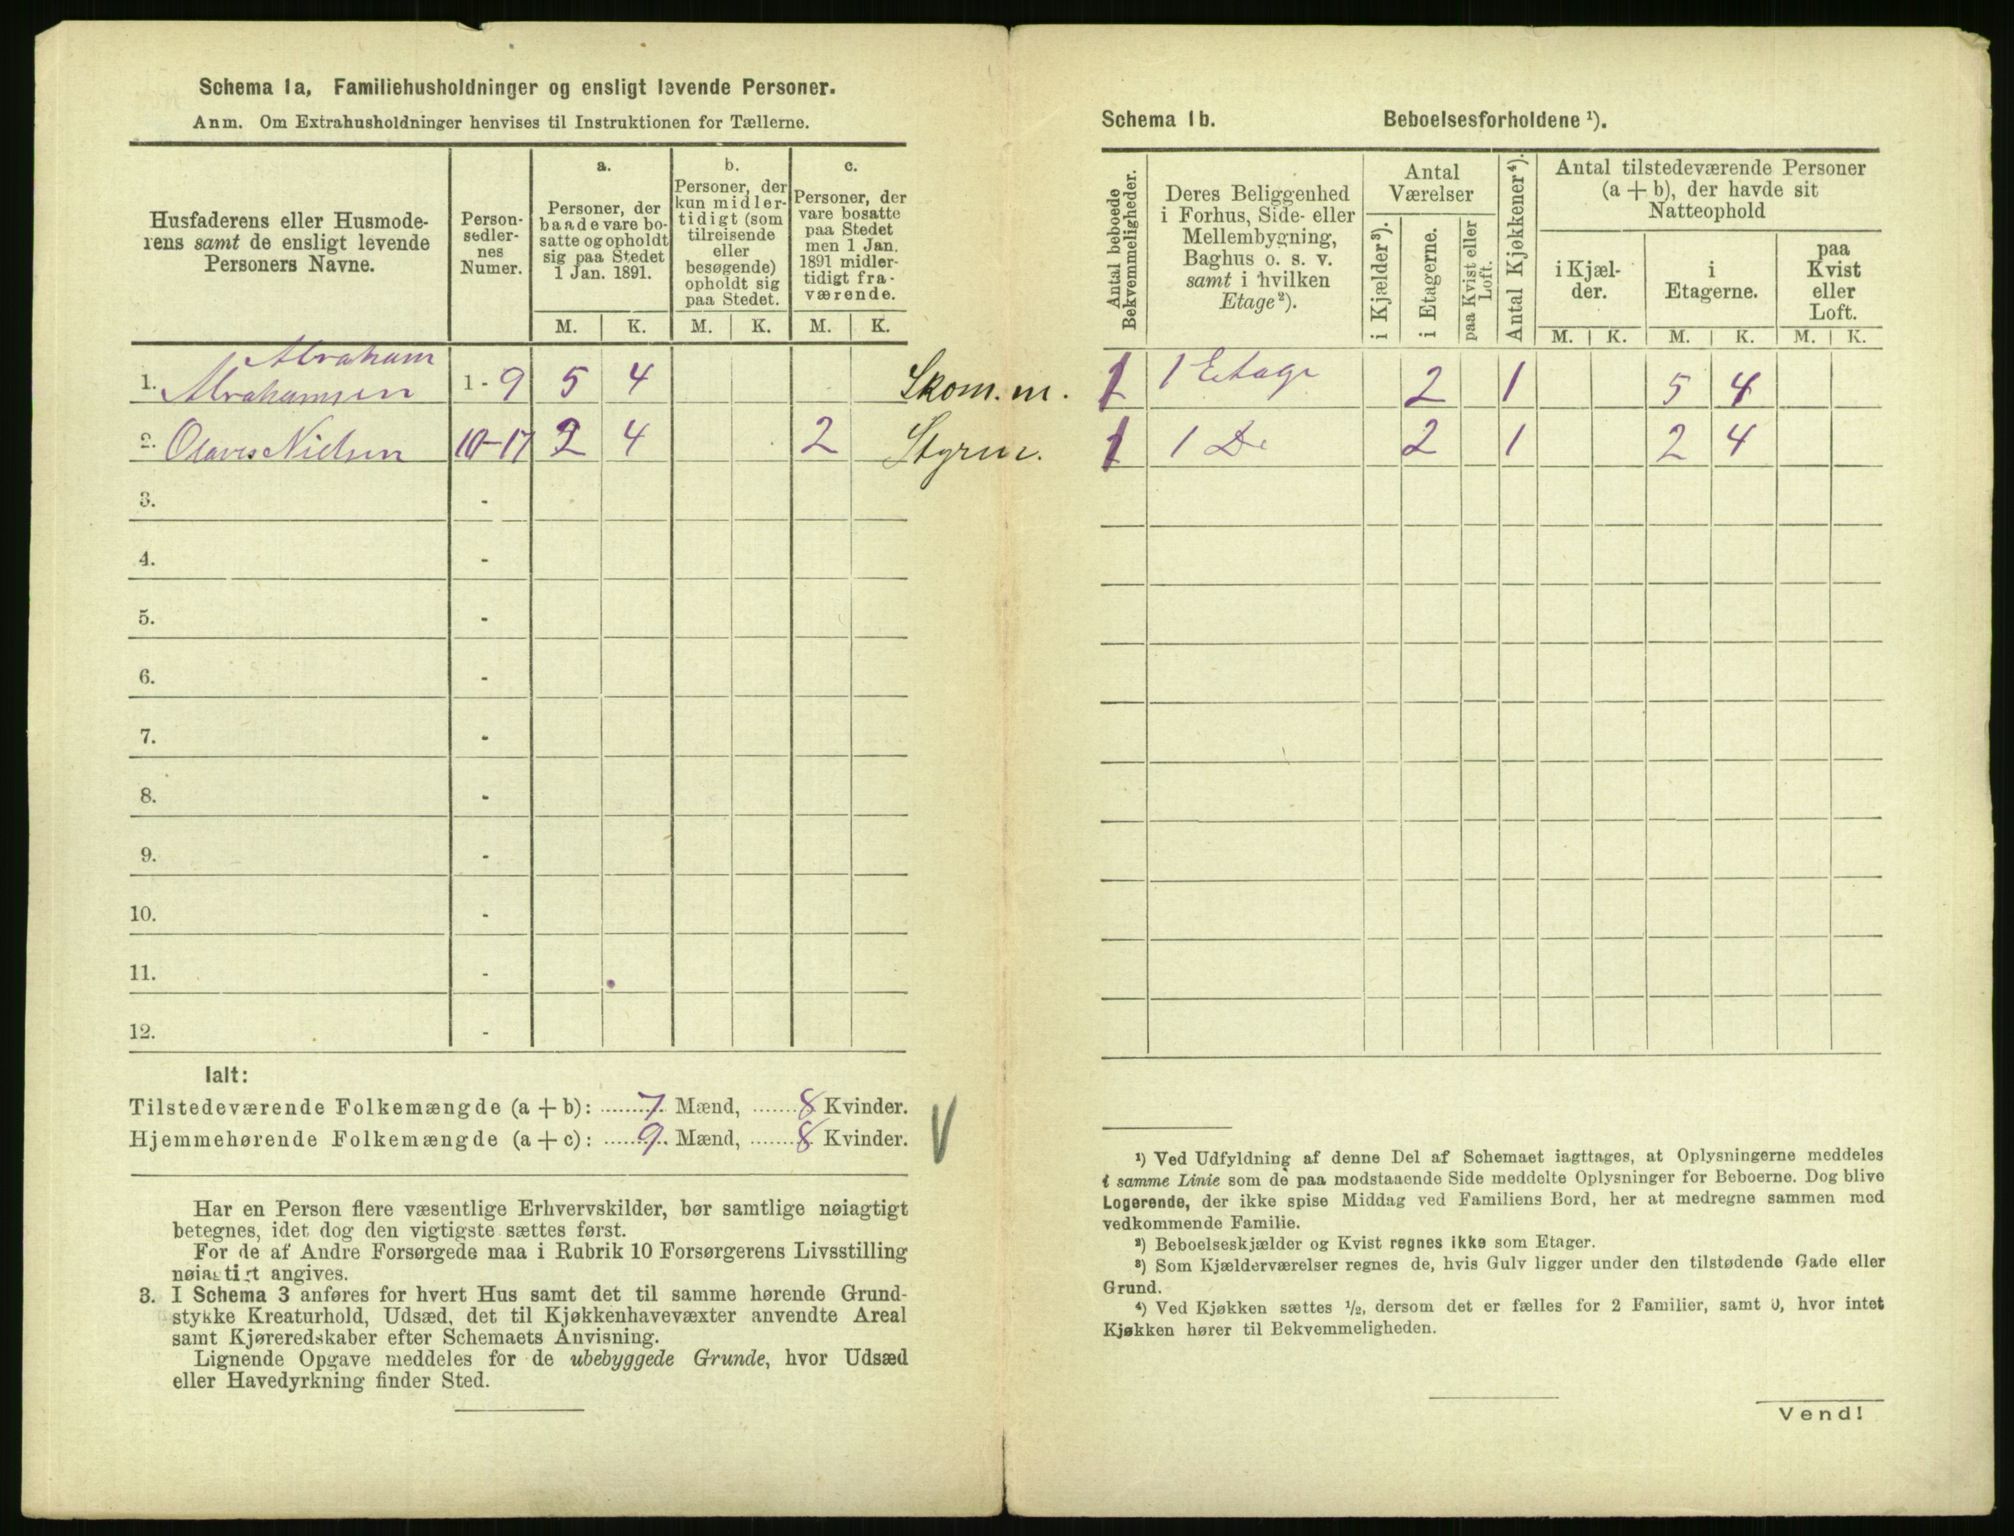 Schema 1a, Familiehusholdninger og ensligt levende Personer.
Anm. Om Extrahusholdninger henvises til Instruktionen for Tællerne.
Husfaderens eller Husmode-
rens samt de ensligt levende
Personers Navne.
Person-
sedler-
nes
Numer.
a.
Personer, der
baade vare bo-
satte og opholdt
sig paa Stedet
1 Jan. 1891.
b.
Personer, der
kun midler-
tidigt (som
tilreisende
eller
besøgende)
opholdt sig
paa Stedet.
c.
Personer, der
vare bosatte
paa Stedet
men 1 Jan.
1891 midler-
tidigt fra-
værende.
M. K. M. K. M. K.
Abraham
1. Abrahamsen 1 - 9 5 4 Skom.m.
2. Olaves Nielsen 10-17 2 4 2 Styrm.
3. -
4. -
5. -
6. -
7. -
8. -
9. -
10. -
11. -
12. -
Ialt:
Tilstedeværende Folkemængde (a + b): 7 Mænd, 8 Kvinder.
Hjemmehørende Folkemængde (a + c): 9 Mænd, 8 Kvinder.
Har en Person flere væsentlige Erhvervskilder, bør samtlige nøiagtigt
betegnes, idet dog den vigtigste sættes først.
For de af Andre Forsørgede maa i Rubrik 10 Forsørgerens Livsstilling
nøiagtigt angives.
3. I Schema 3 anføres for hvert Hus samt det til samme hørende Grund-
stykke Kreaturhold, Udsæd, det til Kjøkkenhavevæxter anvendte Areal
samt Kjøreredskaber efter Schemaets Anvisning.
Lignende Opgave meddeles for de ubebyggede Grunde, hvor Udsæd
eller Havedyrkning finder Sted.
Schema 1b. Beboelsesforholdene ¹).
Antal beboede
Bekvemmeligheder.
Deres Beliggenhed
i Forhus, Side- eller
Mellembygning,
Baghus o. s. v.
samt i hvilken
Etage²).
Antal
Værelser
i Kjælder³).
i Etagerne.
paa Kvist eller
Loft.
Antal Kjøkkener⁴).
Antal tilstedeværende Personer
(a + b), der havde sit
Natteophold
i Kjæl-
der.
i
Etagerne.
paa
Kvist
eller
Loft.
M. K. M. K. M. K.
1 1 Etage 2 1 5 4
1 1 Do 2 1 2 4
¹) Ved Udfyldning af denne Del af Schemaet iagttages, at Oplysningerne meddeles
i samme Linie som de paa modstaaende Side meddelte Oplysninger for Beboerne. Dog blive
Logerende, der ikke spise Middag ved Familiens Bord, her at medregne sammen med
vedkommende Familie.
²) Beboelseskjælder og Kvist regnes ikke som Etager.
³) Som Kjælderværelser regnes de, hvis Gulv ligger under den tilstødende Gade eller
Grund.
⁴) Ved Kjøkken sættes ½, dersom det er fælles for 2 Familier, samt 0, hvor intet
Kjøkken hører til Bekvemmeligheden.
Vend!